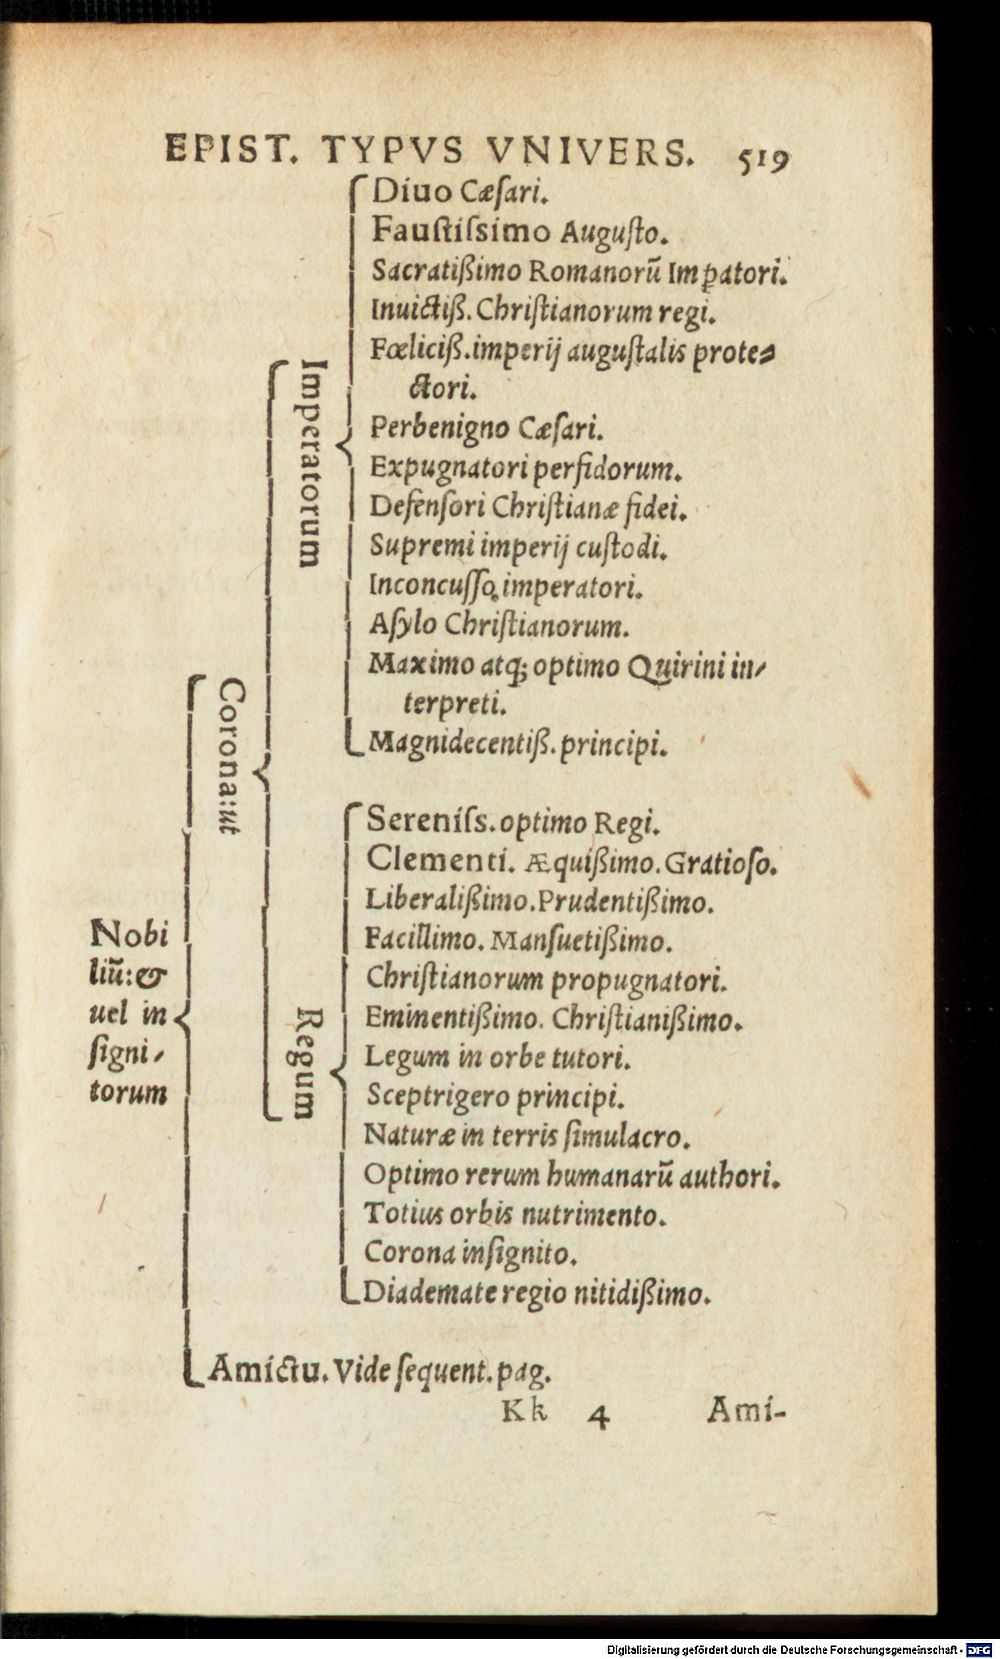 EPIST. TYPVS VNIVERS. 519
Nobi
liũ: &
uel in
signi-
torum
Corona: ut
Imperatorum
Diuo Cæſari.
Fauſtiſsimo Auguſto.
Sacratiſsimo Romanorũ Imꝑatori.
Inuictiß. Chriſtianorum regi.
Fœliciß. imperij auguſtalis prote-
ctori.
Perbenigno Cæſari.
Expugnatori perfidorum.
Defenſori Chriſtianæ fidei.
Supremi imperij cuſtodi.
Inconcuſſo, imperatori.
Aſylo Chriſtianorum.
Maximo atq; optimo Quirini in-
terpreti.
Magnidecentiß. principi.
Regum
Sereniſs. optimo Regi.
Clementi. Æquißimo. Gratioſo.
Liberalißimo. Prudentißimo.
Facillimo. Manſuetißimo.
Chriſtianorum propugnatori.
Eminentißimo. Chriſtianißimo.
Legum in orbe tutori.
Sceptrigero principi.
Naturæ in terris ſimulacro.
Optimo rerum humanarũ authori.
Totius orbis nutrimento.
Corona inſignito.
Diademate regio nitidißimo.
Amictu. Vide ſequent. pag.
Kk 4 Ami-
Digitalisierung gefördert durch die Deutsche Forschungsgemeinschaft - DFG